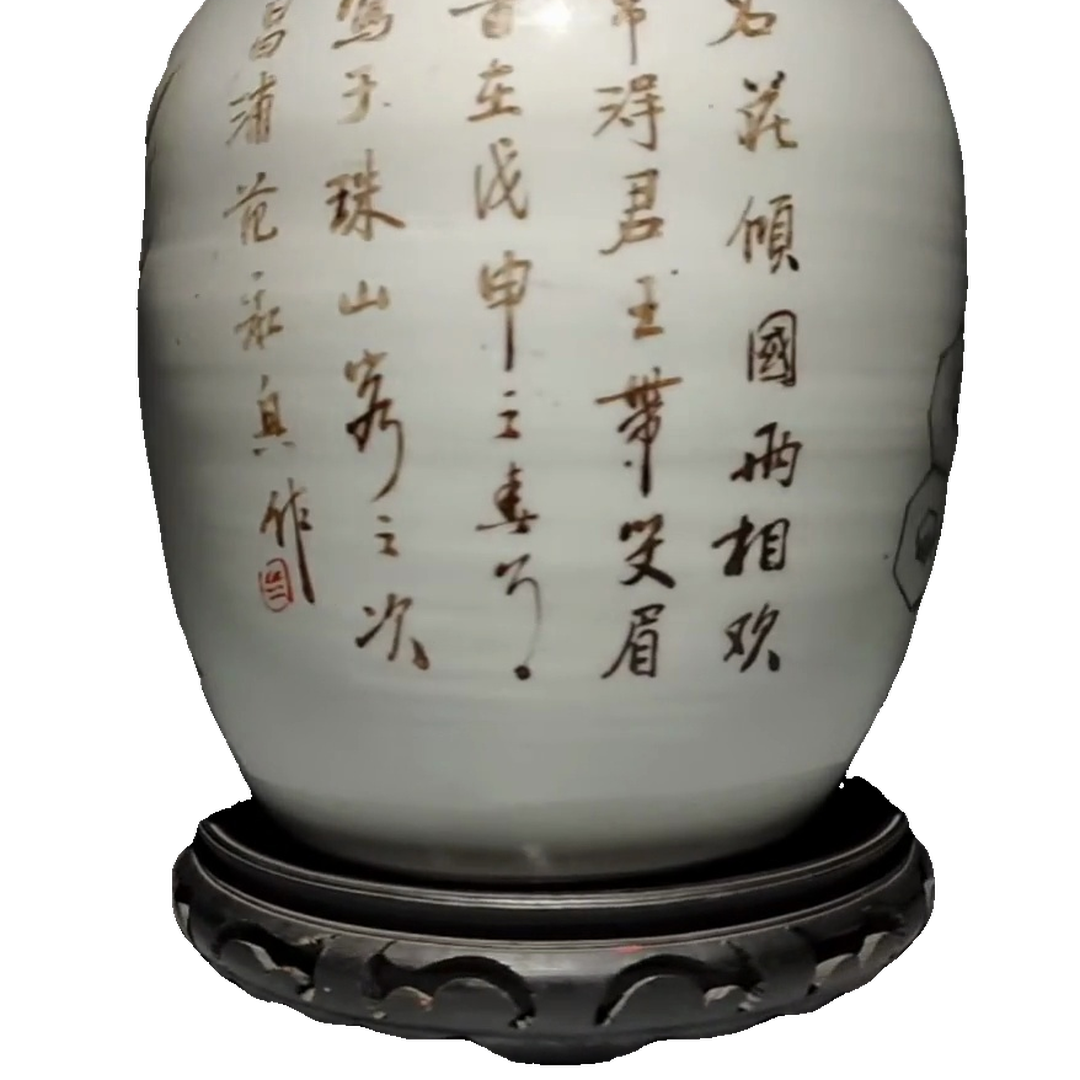 名花傾國兩相欢
常得君王帶笑眉
旹在戊申之春月
寫于珠山客之次
昌浦范永作